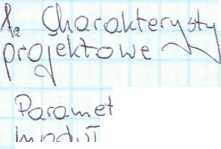 1. Charakterysty
projektowe
Paramet